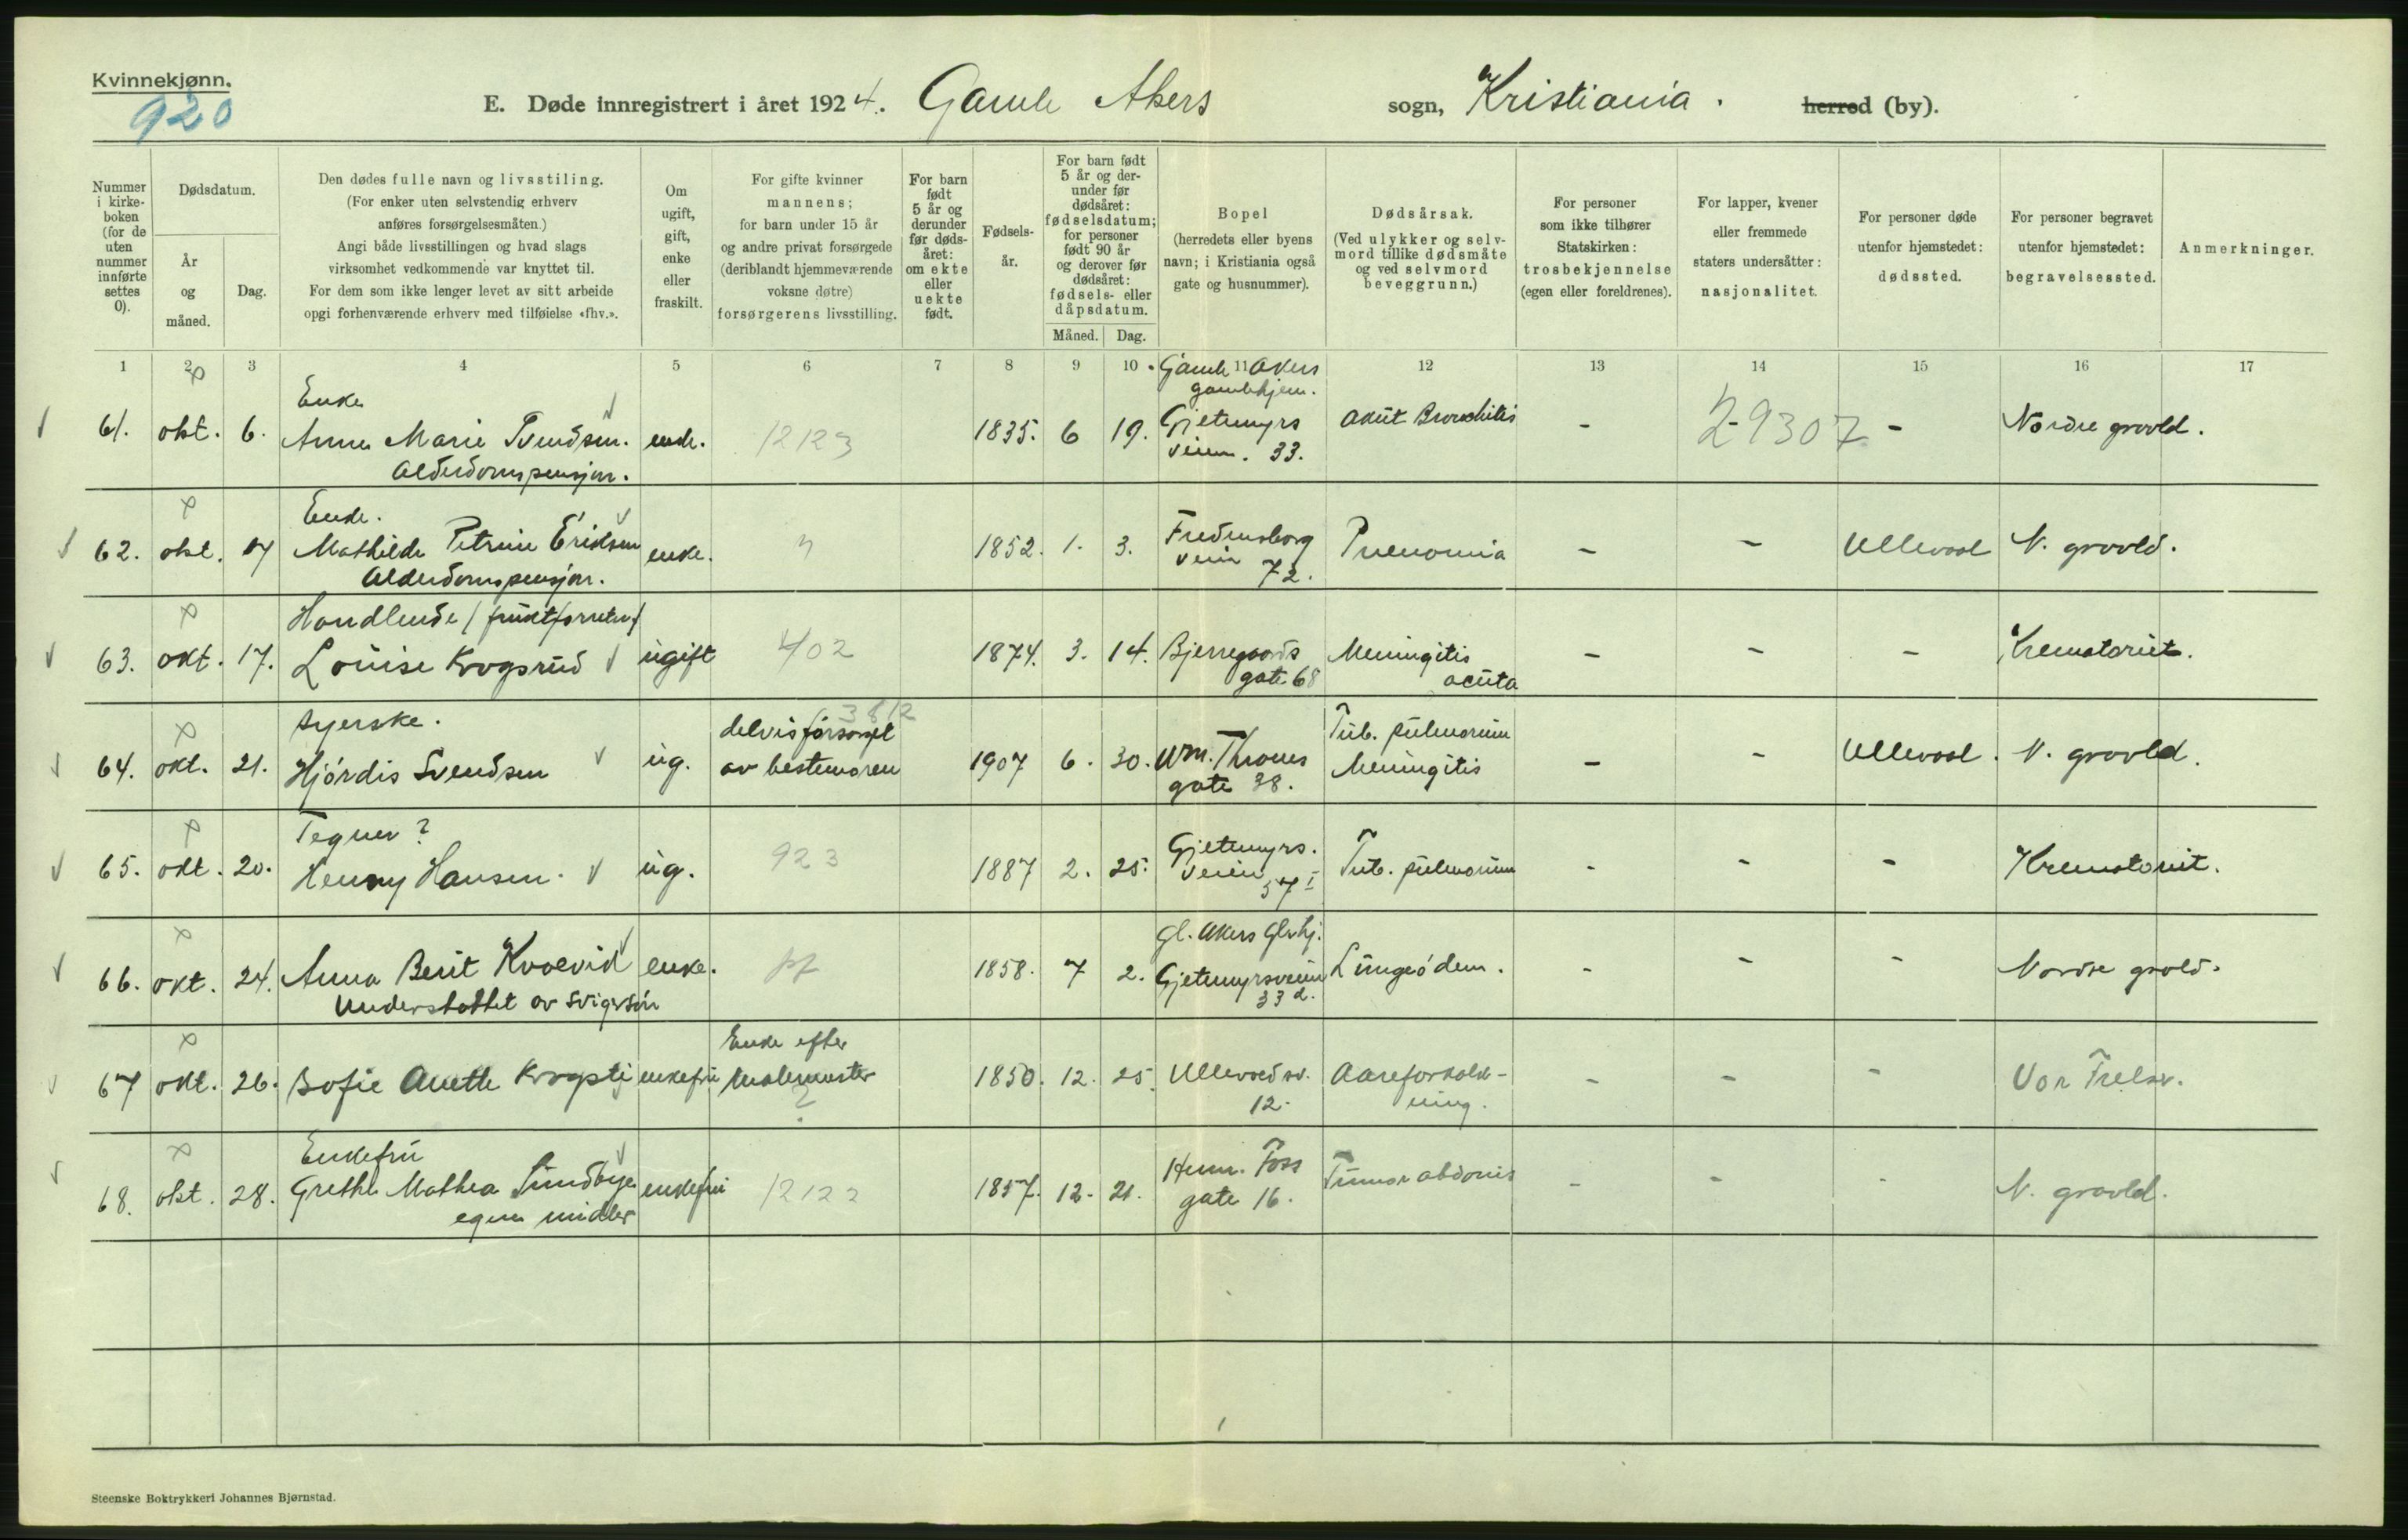 Kvinnekjønn.
920
E. Døde innregistrert i året 1924. Gamle Akers sogn, Kristiania. herred (by).
Nummer i kirke-boken (for de uten nummer innførte settes 0).
Dødsdatum.
År og måned.
Dag.
Den dødes fulle navn og livsstiling.
(For enker uten selvstendig erhverv
anføres forsørgelsesmåten.)
Angi både livsstillingen og hvad slags
virksomhet vedkommende var knyttet til.
For dem som ikke lenger levet av sitt arbeide
opgi forhenværende erhverv med tilføielse «fhv.».
Om ugift, gift, enke eller fraskilt.
For gifte kvinner
mannens;
for barn under 15 år
og andre privat forsørgede
(deriblandt hjemmeværende
voksne døtre)
forsørgerens livsstilling.
For barn født 5 år og derunder før døds-året: om ekte eller uekte født.
Fødsels-år.
For barn født 5 år og der-under før dødsåret: fødselsdatum; for personer født 90 år og derover før dødsåret: fødsels- eller dåpsdatum.
Måned. Dag.
Bopel
(herredets eller byens
navn; i Kristiania også
gate og husnummer).
Dødsårsak.
(Ved ulykker og selv-
mord tillike dødsmåte
og ved selvmord
beveggrunn.)
For personer
som ikke tilhører
Statskirken:
trosbekjennelse
(egen eller foreldrenes).
For lapper, kvener
eller fremmede
staters undersåtter:
nasjonalitet.
For personer døde
utenfor hjemstedet:
dødssted.
For personer begravet
utenfor hjemstedet:
begravelsessted.
Anmerkninger.
1 2 3 4 5 6 7 8 9 10 11 12 13 14 15 16 17
Enke Gamle Akers
gamlehjem.
61. okt. 6. Anne Marie Svendsen. enke. 12123 1835. 6 19. Gjetemyrs Akut Bronchitis - 29307 - Nordre gravld.
Alderdomspensjon. veien. 33.
Enke.
62. okt. 17 Mathilde Petrine Eriksen enke. 1852. 1. 3. Fredensborg Pneuomia - - Ullevaal N. gravld.
Alderdomspensjon. vein 72.
Handlende (fruktforretn.)
63. okt. 17. Louise Krogsrud ugift 402 1874. 3. 14. Bjerregaards Meningitis - - - Krematoriet.
gate 68 acuta
syerske. 3812
delvis forsørget Tub. pulmonum
64. okt. 21. Hjørdis Svendsen ug. av bestemoren 1907 6. 30. Wm. Thranes Meningitis - - Ullevaal. N. gravld.
gate 38.
Tegner?
65. okt. 20. Henny Hansen. ug. 923 1887 2. 25. Gjetemyrs. Tub. pulmonum - - - Krematoriet.
veien 57 I
Gl. Akers Glhj.
66. okt. 24. Anna Berit enke. 1858. 7 2. Gjetemyrsveien Lungeødem. - - - Nordre gravld.
Understøttet av svigersøn 33 d.
Enke efter
67 okt. 26. Sofie Anette enkefru Malermester 1850. 12. 25. Ullevaalsv. Aareforkalk- - - - Vor Frelser.
? 12. ning.
Enkefru
68. okt. 28. Grethe Mathea Sundbye enkefru 12122 1857. 12. 21. Henr. Foss Tumor abdomis - - - N. gravld.
egne midler gate 16.
Steenske Boktrykkeri Johannes Bjørnstad.